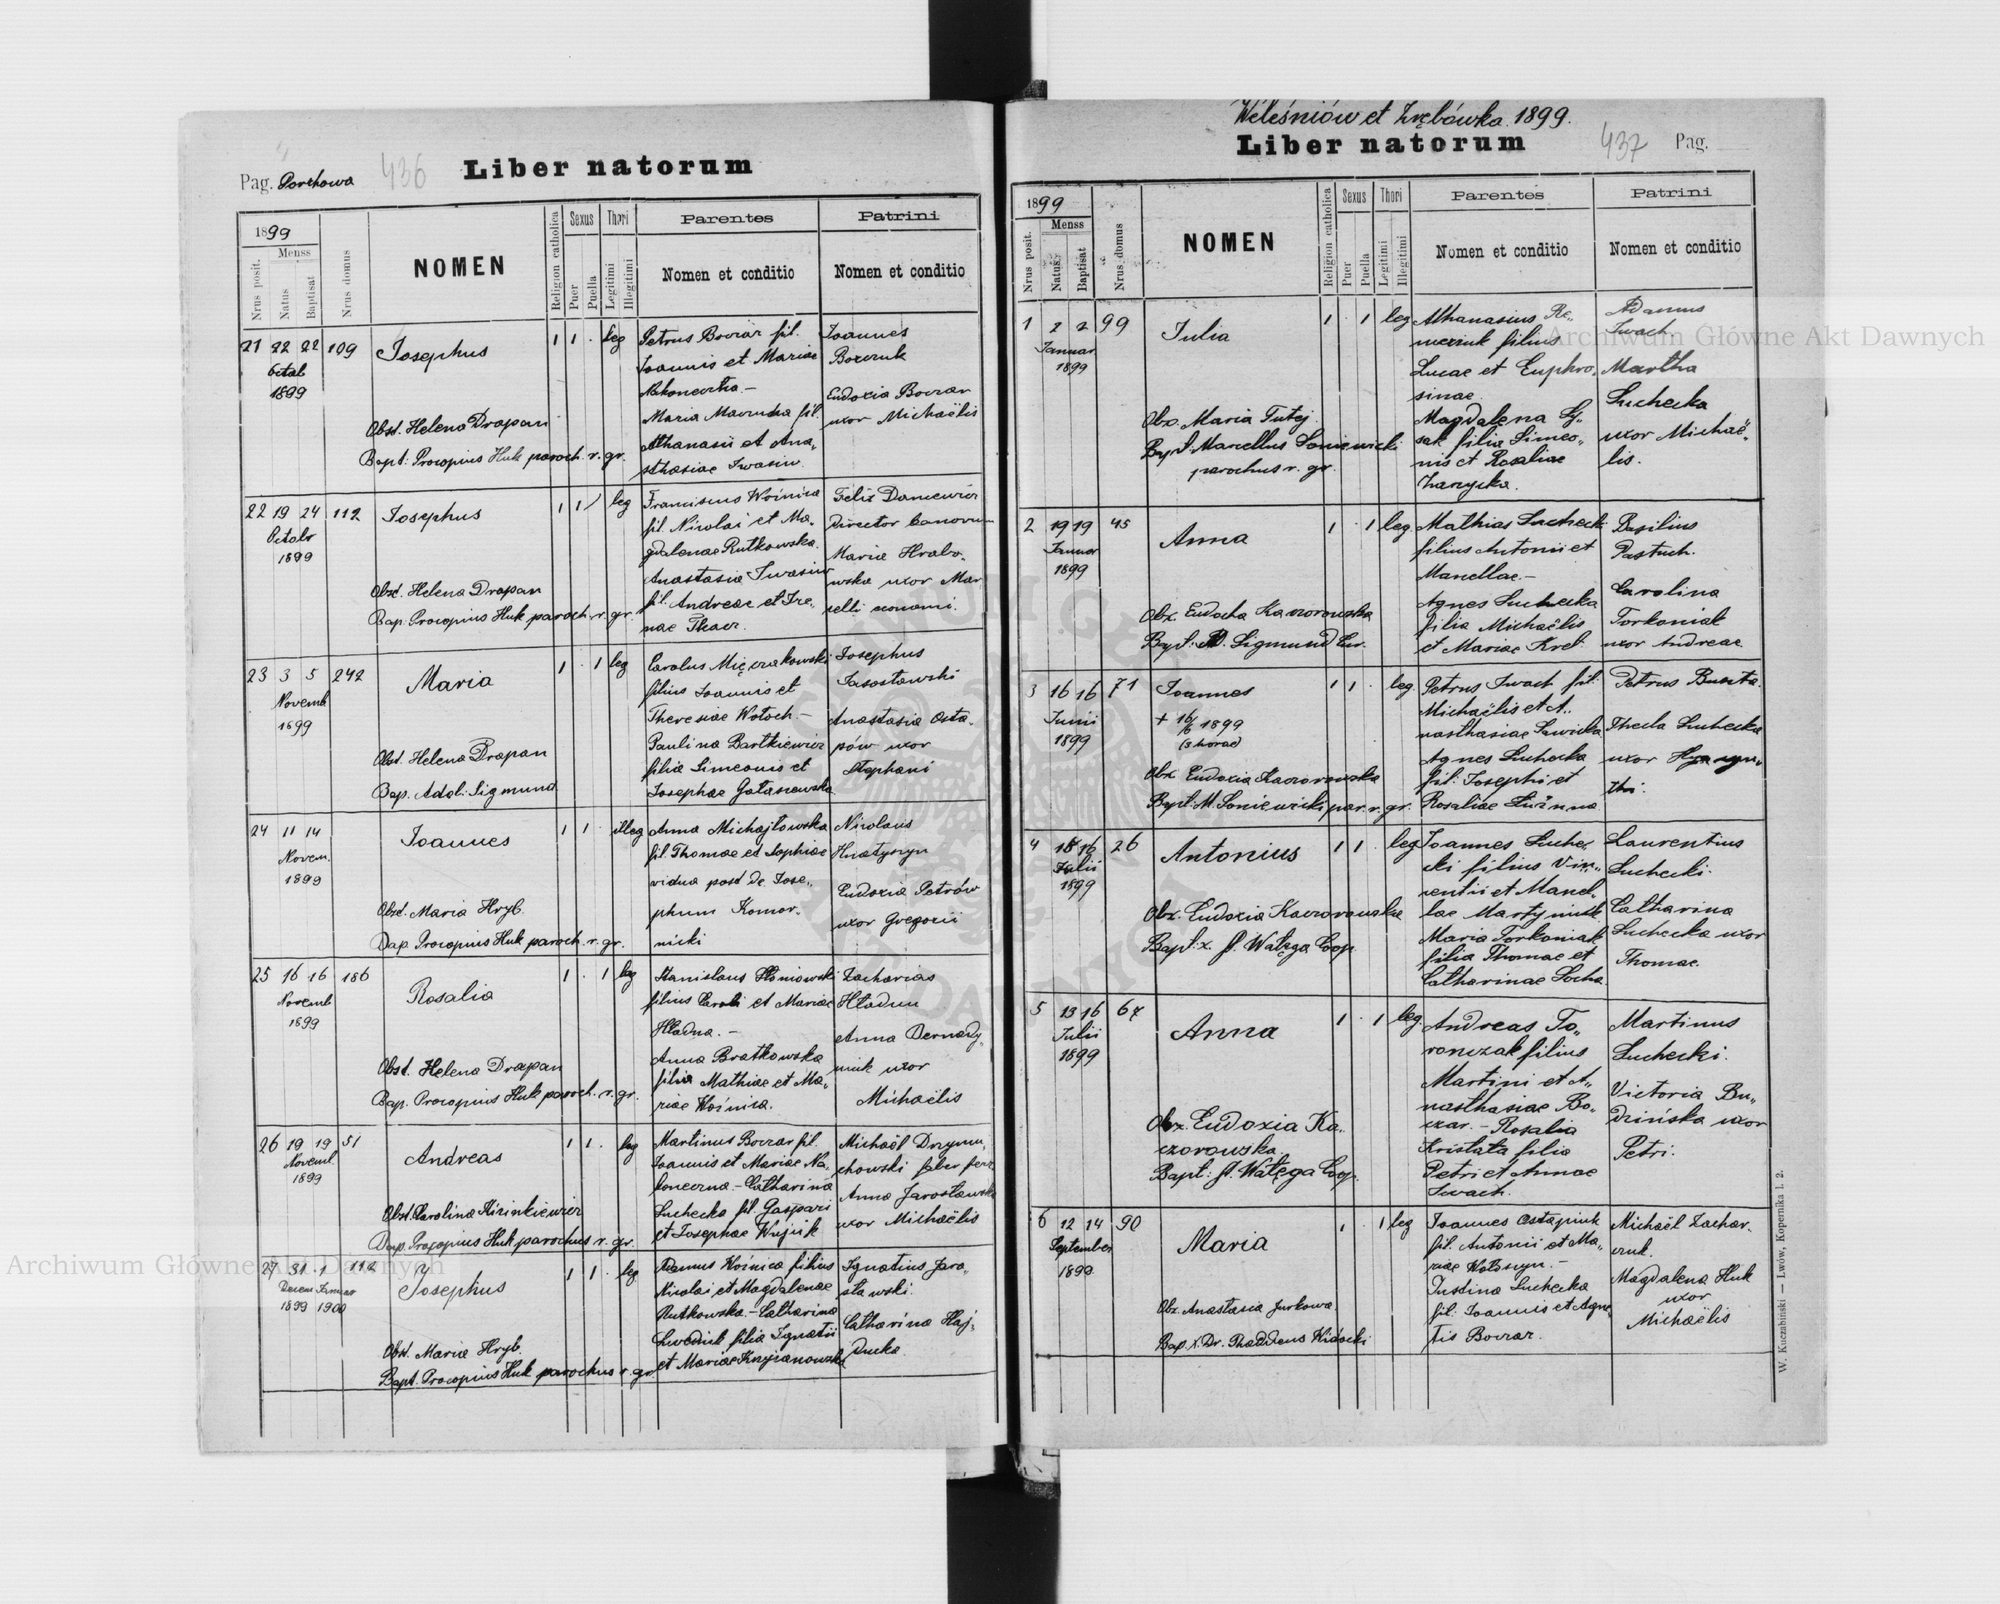 Pag. Porchowa 436 Liber natorum
1899
Menss
Nrus posit.
Natus
Baptisat
Nrus domus
NOMEN
Religion catholica
Sexus
Puer
Puella
Thori
Legitimi
Illegitimi
Parentes
Nomen et conditio
Patrini
Nomen et conditio
21 22 22 109 Josephus 1 1 . leg
Octob
1899
Obst. Helena Drapan
Bapt: Procopius Huk paroch. r. gr.
Petrus Boczar fil.
Joannis et Mariae
Nakoneczna –
Maria fil.
Athanasii et Ana„
sthasiae Iwasiw.
Joannes
Eudoxia Boczar
uxor Michaëlis
22 19 24 112 Josephus 1 1 leg
Octobr
1899
Obst. Helena Drapan
Bap. Procopius Huk paroch. r. gr.
Franciscus Woźnica
fil. Nicolai et Ma„
gdalenae Rutkowska.
Anastasia Iwasiw
fil. Andreae et Ire„
nae Tkacz.
Felix Daniewicz
Director
Maria Hrabo„
wska uxor Mar
celli economi.
23 3 5 242 Maria 1 . 1 leg
Novemb
1899
Obst. Helena Drapan
Bap. Adal: Sigmund
Carolus
filius Joannis et
Theresiae Wołoch –
Paulina Bartkiewicz
filia Simeonis et
Josephae
Josephus
Anastasia Osta„
pów uxor
Stephani
24 11 14 Joannes 1 1 . illeg
Novem.
1899
Obst. Maria Hryb.
Bap. Procopius Huk paroch. r. gr.
Anna Michajłowska
fil. Thomae et Sophiae
vidua post de Jose„
phum Komar„
nicki
Nicolaus
Hnatyszyn
Eudoxia Petrów
uxor Gregorii
25 16 16 186 Rosalia 1 . 1 leg
Novemb
1899
Obst. Helena Drapan
Bap. Procopius Huk paroch. r. gr.
Stanislaus
filius Caroli et Mariae
Hładna. –
Anna Bratkowska
filia Mathiae et Ma„
riae Woźnica.
Zacharias
Hładun
Anna Bernady„
niuk uxor
Michaëlis
26 19 19 51 Andreas 1 1 . leg
Novemb.
1899
Obst. Carolina
Bap. Procopius Huk parochus r. gr.
Martinus Boczar fil.
Joannis et Mariae Na„
koneczna. – Catharina
Suchecka fil. Gaspari
et Josephae Wujcik
Michaël Drzymu„
chowski faber ferr.
Anna Jarosławska
uxor Michaëlis
27 31 1 112 Josephus 1 1 . leg
Decem Januar
1899 1900
Obst. Maria Hryb.
Bapt. Procopius Huk parochus r. gr.
Damus Woźnica filius
Nicolai et Magdalenae
Rutkowska – Catharina
filia Ignatii
et Mariae
Ignatius Jaro„
sławski.
Catharina Haj„
ducka
Weleśniów et Zrębówka 1899.
Liber natorum 437 Pag.
1899
Menss
Nrus posit.
Natus
Baptisat
Nrus domus
NOMEN
Religion catholica
Sexus
Puer
Puella
Thori
Legitimi
Illegitimi
Parentes
Nomen et conditio
Patrini
Nomen et conditio
1 2 2 99 Julia 1 . 1 leg
Januar
1899
Obs. Maria Tutej
Bapt. Marcellus Soniewicki
parochus r. gr.
Athanasius Re„
filius
Lucae et Euphro„
sinae.
Magdalena Sy„
sak filia Simeo„
nis et Rosaliae
Zarycka.
Damus
Iwach
Martha
Suchecka
uxor Michaë„
lis.
2 19 19 45 Anna 1 . 1 leg
Januar
1899
Obs. Eudocha Kaczorowska
Bapt: Sigmund Cur.
Mathias Suchecki
filius Antonii et
Marcellae. –
Agnes Suchecka
filia Michaëlis
et Mariae Kret
Basilius
Pastuch.
Carolina
Torkoniak
uxor Andreae
3 16 16 71 Joannes 1 1 . leg
Junii
1899
+ 16/6 1899
(3 horae)
Obs. Eudoxia Kaczorowska
Bapt. M. Soniewicki par. r. gr.
Petrus Iwach fil.
Michaëlis et A„
nasthasiae Sawicka
Agnes Suchecka
fil. Josephi et
Rosaliae
Petrus
Thecla Suchecka
uxor Hyacyn„
thi.
4 16 26 Antonius 1 1 . leg
Julii
1899
Obs. Eudoxia Kaczorowska
Bapt: x. J. Wałęga Coop.
Joannes Suche„
cki filius Vin„
centii et Marcel„
lae Martyniuk
Maria Torkoniak
filia Thomae et
Catharinae Socha
Laurentius
Suchecki.
Catharina
Suchecka uxor
Thomae.
5 13 16 67 Anna 1 . 1 leg
Julii
1899
Obs. Eudoxia Ka„
czorowska.
Bapt: J. Wałęga Coop.
Andreas To„
ronczak filius
Martini et A„
nasthasiae Bo„
czar. – Rosalia
Kristata filia
Petri et Annae
Iwach.
Martinus
Suchecki.
Victoria Bu„
dzińska uxor
Petri.
6 12 14 90 Maria 1 . 1 leg
September
1899
Obs. Anastasia Jurkowa
Bap. x. Dr. Thaddeus
Joannes Ostapiuk
fil. Antonii et Ma„
riae Wołoszyn. –
Justina Suchecka
fil. Joannis et Agne„
tis Boczar.
Michaël Zachar„
czuk.
Magdalena Huk
uxor
Michaëlis
W. Kuczabiński — Lwów, Kopernika l. 2.
Archiwum Główne Akt Dawnych
Archiwum Główne Akt Dawnych